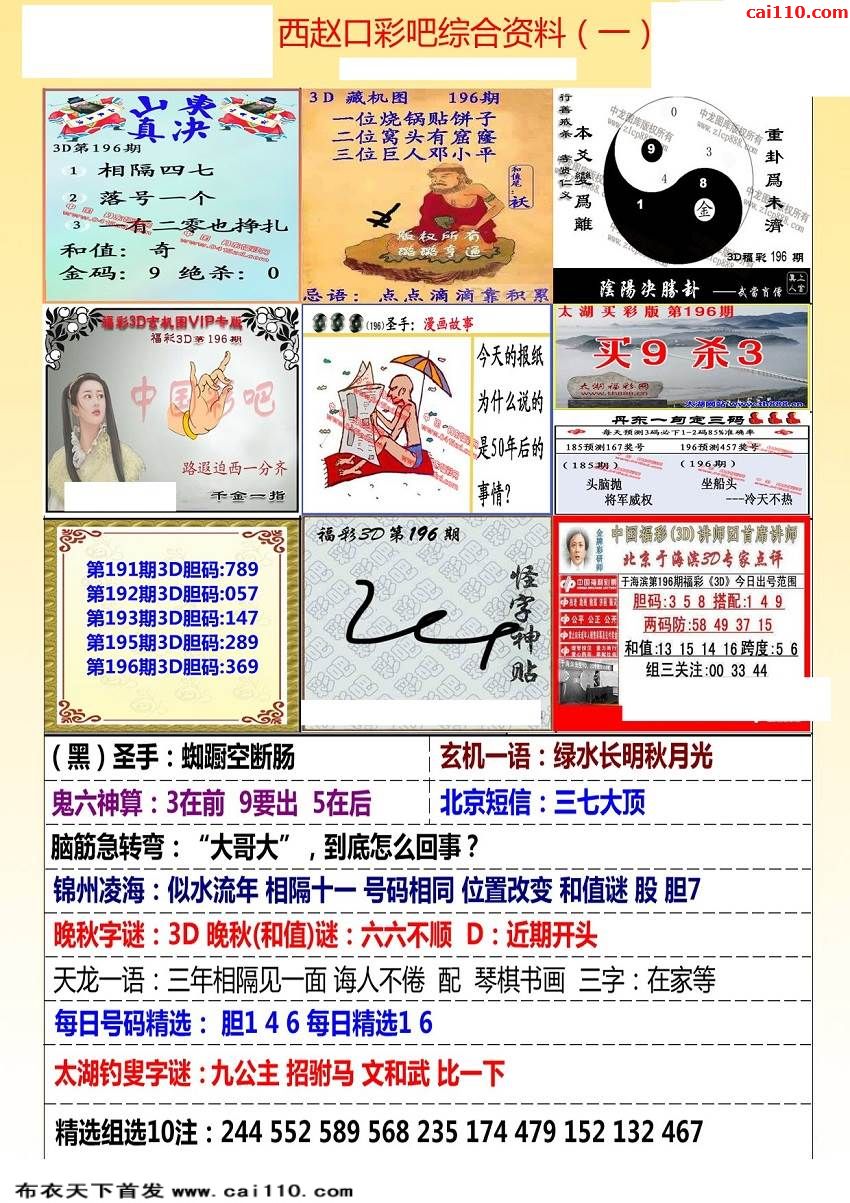 cai110.com
西赵口彩吧综合资料（一）
3D第196期
1 相隔四七
2 落号一个
3 一有二零也挣扎
和值：奇
金码：9 绝杀：0
3D 藏机图 196期
一位烧锅贴饼子
二位窝头有窟窿
三位巨人邓小平
和值尾：袄
版权所有
忌语：点点滴滴靠积累
本爻變爲離
重卦爲未濟
0
9
3
4
8
1
金
中龙图库版权所有
www.zlcp888.com
3D福彩 196 期
陰陽決勝卦
福彩3D玄机图VIP专版
福彩3D第196期
中国彩吧
路遐迫西一分齐
千金一指
(196)圣手：漫画故事
今天的报纸
为什么说的
是50年后的
事情？
太湖 买彩版 第196期
买9 杀3
太湖福彩网
丹东一句定三码
每天预测3码必下1-2码85%准确率
185预测167奖号 196预测457奖号
（185期） （196期）
头脑抛 坐船头
将军威权 ---冷天不热
第191期3D胆码:789
第192期3D胆码:057
第193期3D胆码:147
第195期3D胆码:289
第196期3D胆码:369
福彩3D第196期
怪字神贴
金牌彩研师
中国福彩(3D)讲师团首席讲师
北京于海滨3D专家点评
中国福利彩票
公平 公正 公开
于海滨第196期福彩《3D》今日出号范围
胆码:3 5 8 搭配:1 4 9
两码防:58 49 37 15
和值:13 15 14 16 跨度:5 6
组三关注:00 33 44
（黑）圣手：蜘蹰空断肠
玄机一语：绿水长明秋月光
鬼六神算：3在前 9要出 5在后
北京短信：三七大顶
脑筋急转弯：“大哥大”，到底怎么回事？
锦州凌海：似水流年 相隔十一 号码相同 位置改变 和值谜 股 胆7
晚秋字谜：3D 晚秋(和值)谜：六六不顺 D：近期开头
天龙一语：三年相隔见一面 诲人不倦 配 琴棋书画 三字：在家等
每日号码精选： 胆1 4 6 每日精选1 6
太湖钓叟字谜：九公主 招驸马 文和武 比一下
精选组选10注：244 552 589 568 235 174 479 152 132 467
布衣天下首发 www.cai110.com